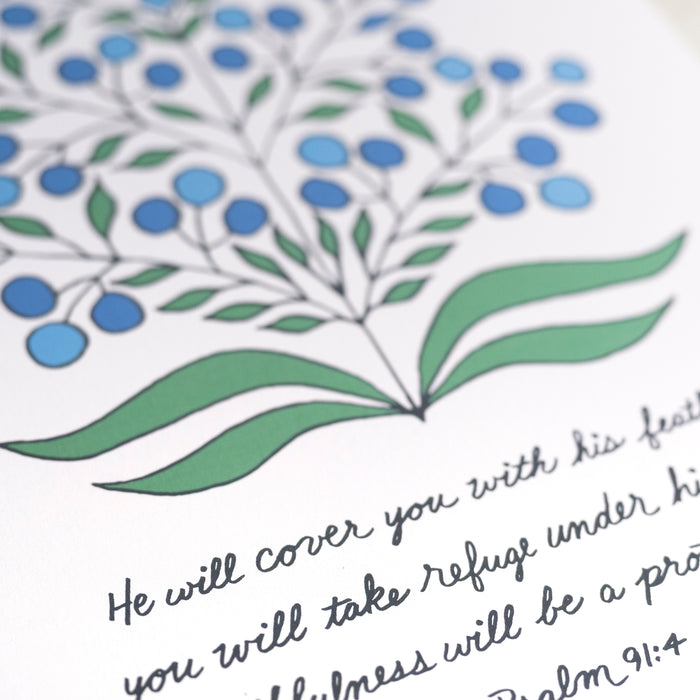 He will cover you with his feath
you will take refuge under hi
fulness will be a pro
Psalm 91:4